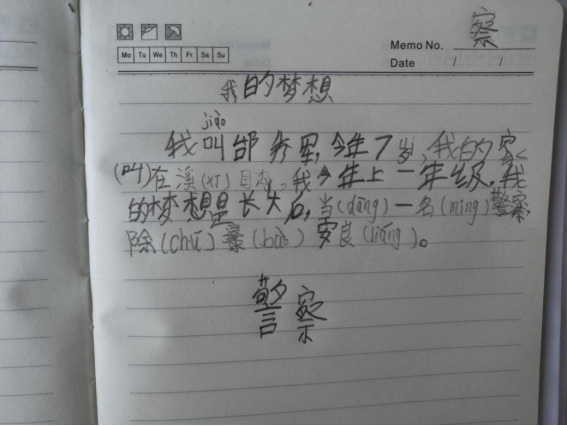 察
Memo No.
Mo Tu We Th Fr Sa Su
Date / /
我的梦想
jiào
我叫邰秀军,今年7岁,我的家
(叫)在溪(xī)口,我今年上一年级,我
的梦想是长大后,当(dāng)一名(míng)警察
除(chú)暴(bào)安良(liáng)。
警察